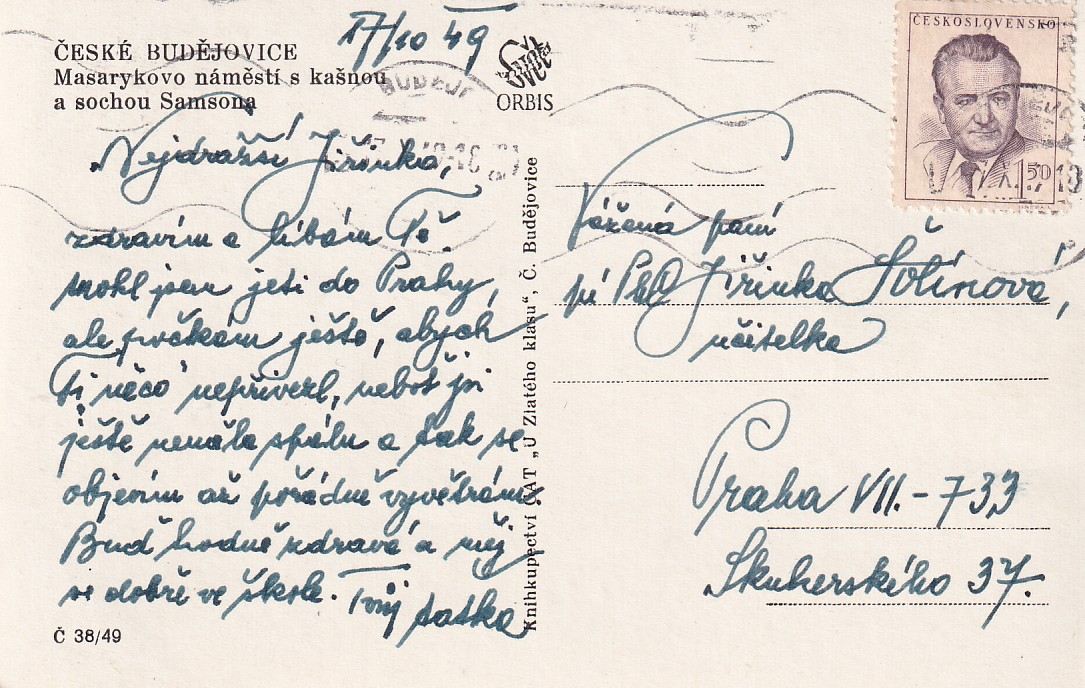 ČESKÉ BUDĚJOVICE
Masarykovo náměstí s kašnou
a sochou Samsona
17/10 49
ORBIS
ČESKOSLOVENSKO
1.50
Nejdražší Jiřinko,
zdravím a líbám Tě.
mohl jsem jeti do Prahy,
ale počkám ještě, abych
Ti něco nepřivezl, neboť jsi
ještě neměla spálu a tak se
objevím až pořádně vyvětrám.
Buď hodně zdravá a měj
se dobře ve škole. Tvůj tatka
Č 38/49
Knihkupectví ČAT „U Zlatého klasu“, Č. Budějovice
Vážená paní
pí Jiřinka Šolínová,
učitelka
Praha VII. - 733
Skuherského 37.